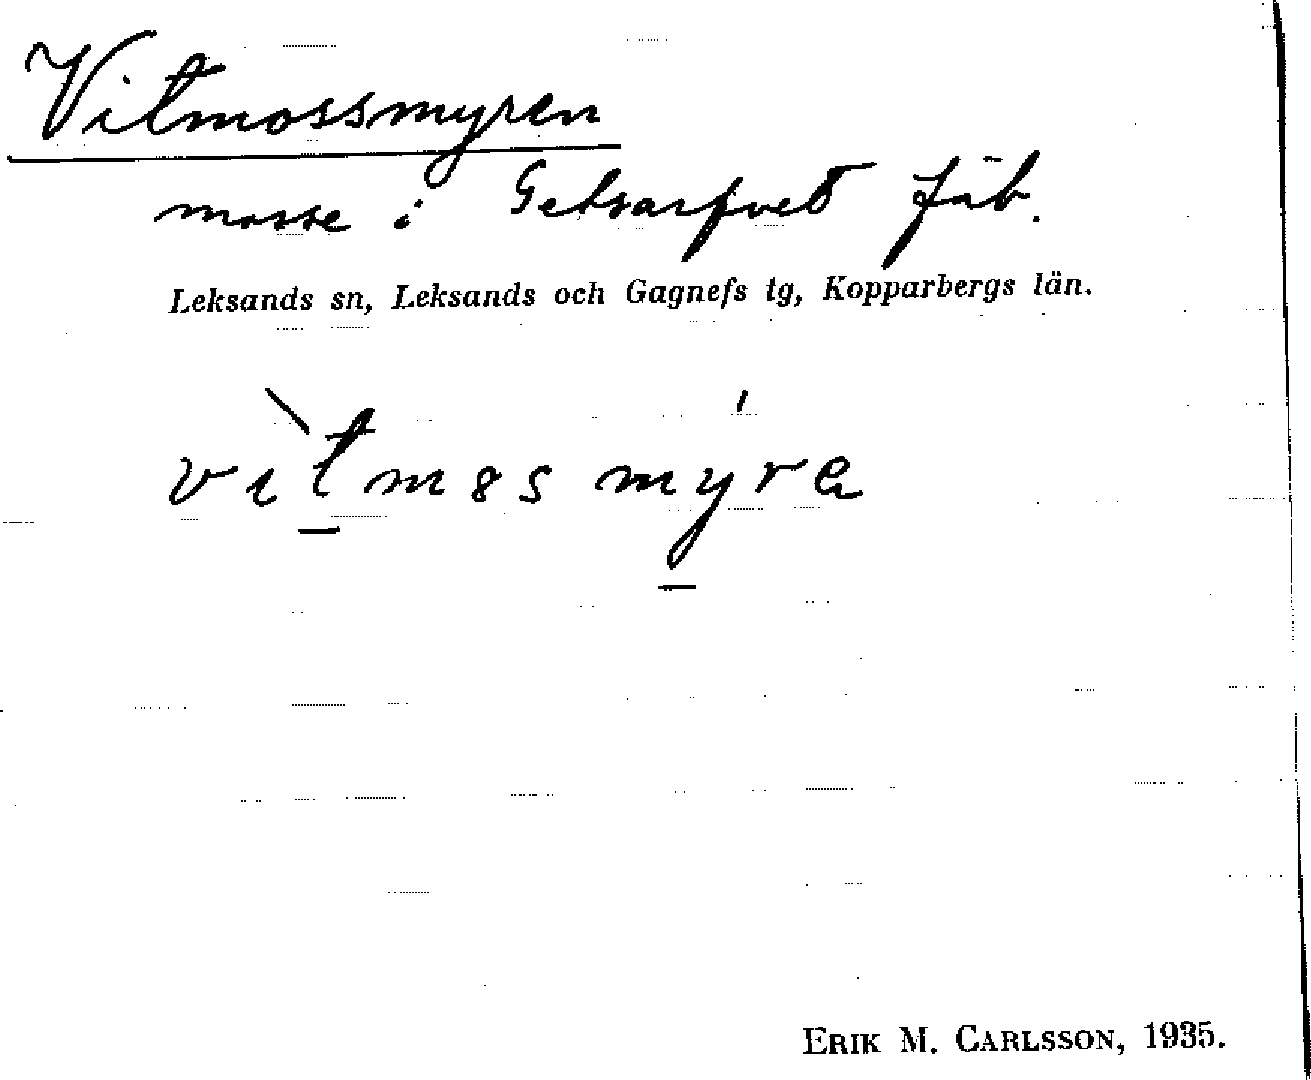 Vitmossmyren
mosse i Getsarfved fäb.
Leksands sn, Leksands och Gagnefs tg, Kopparbergs län.
vìtmøs mýra
ERIK M. CARLSSON, 1935.